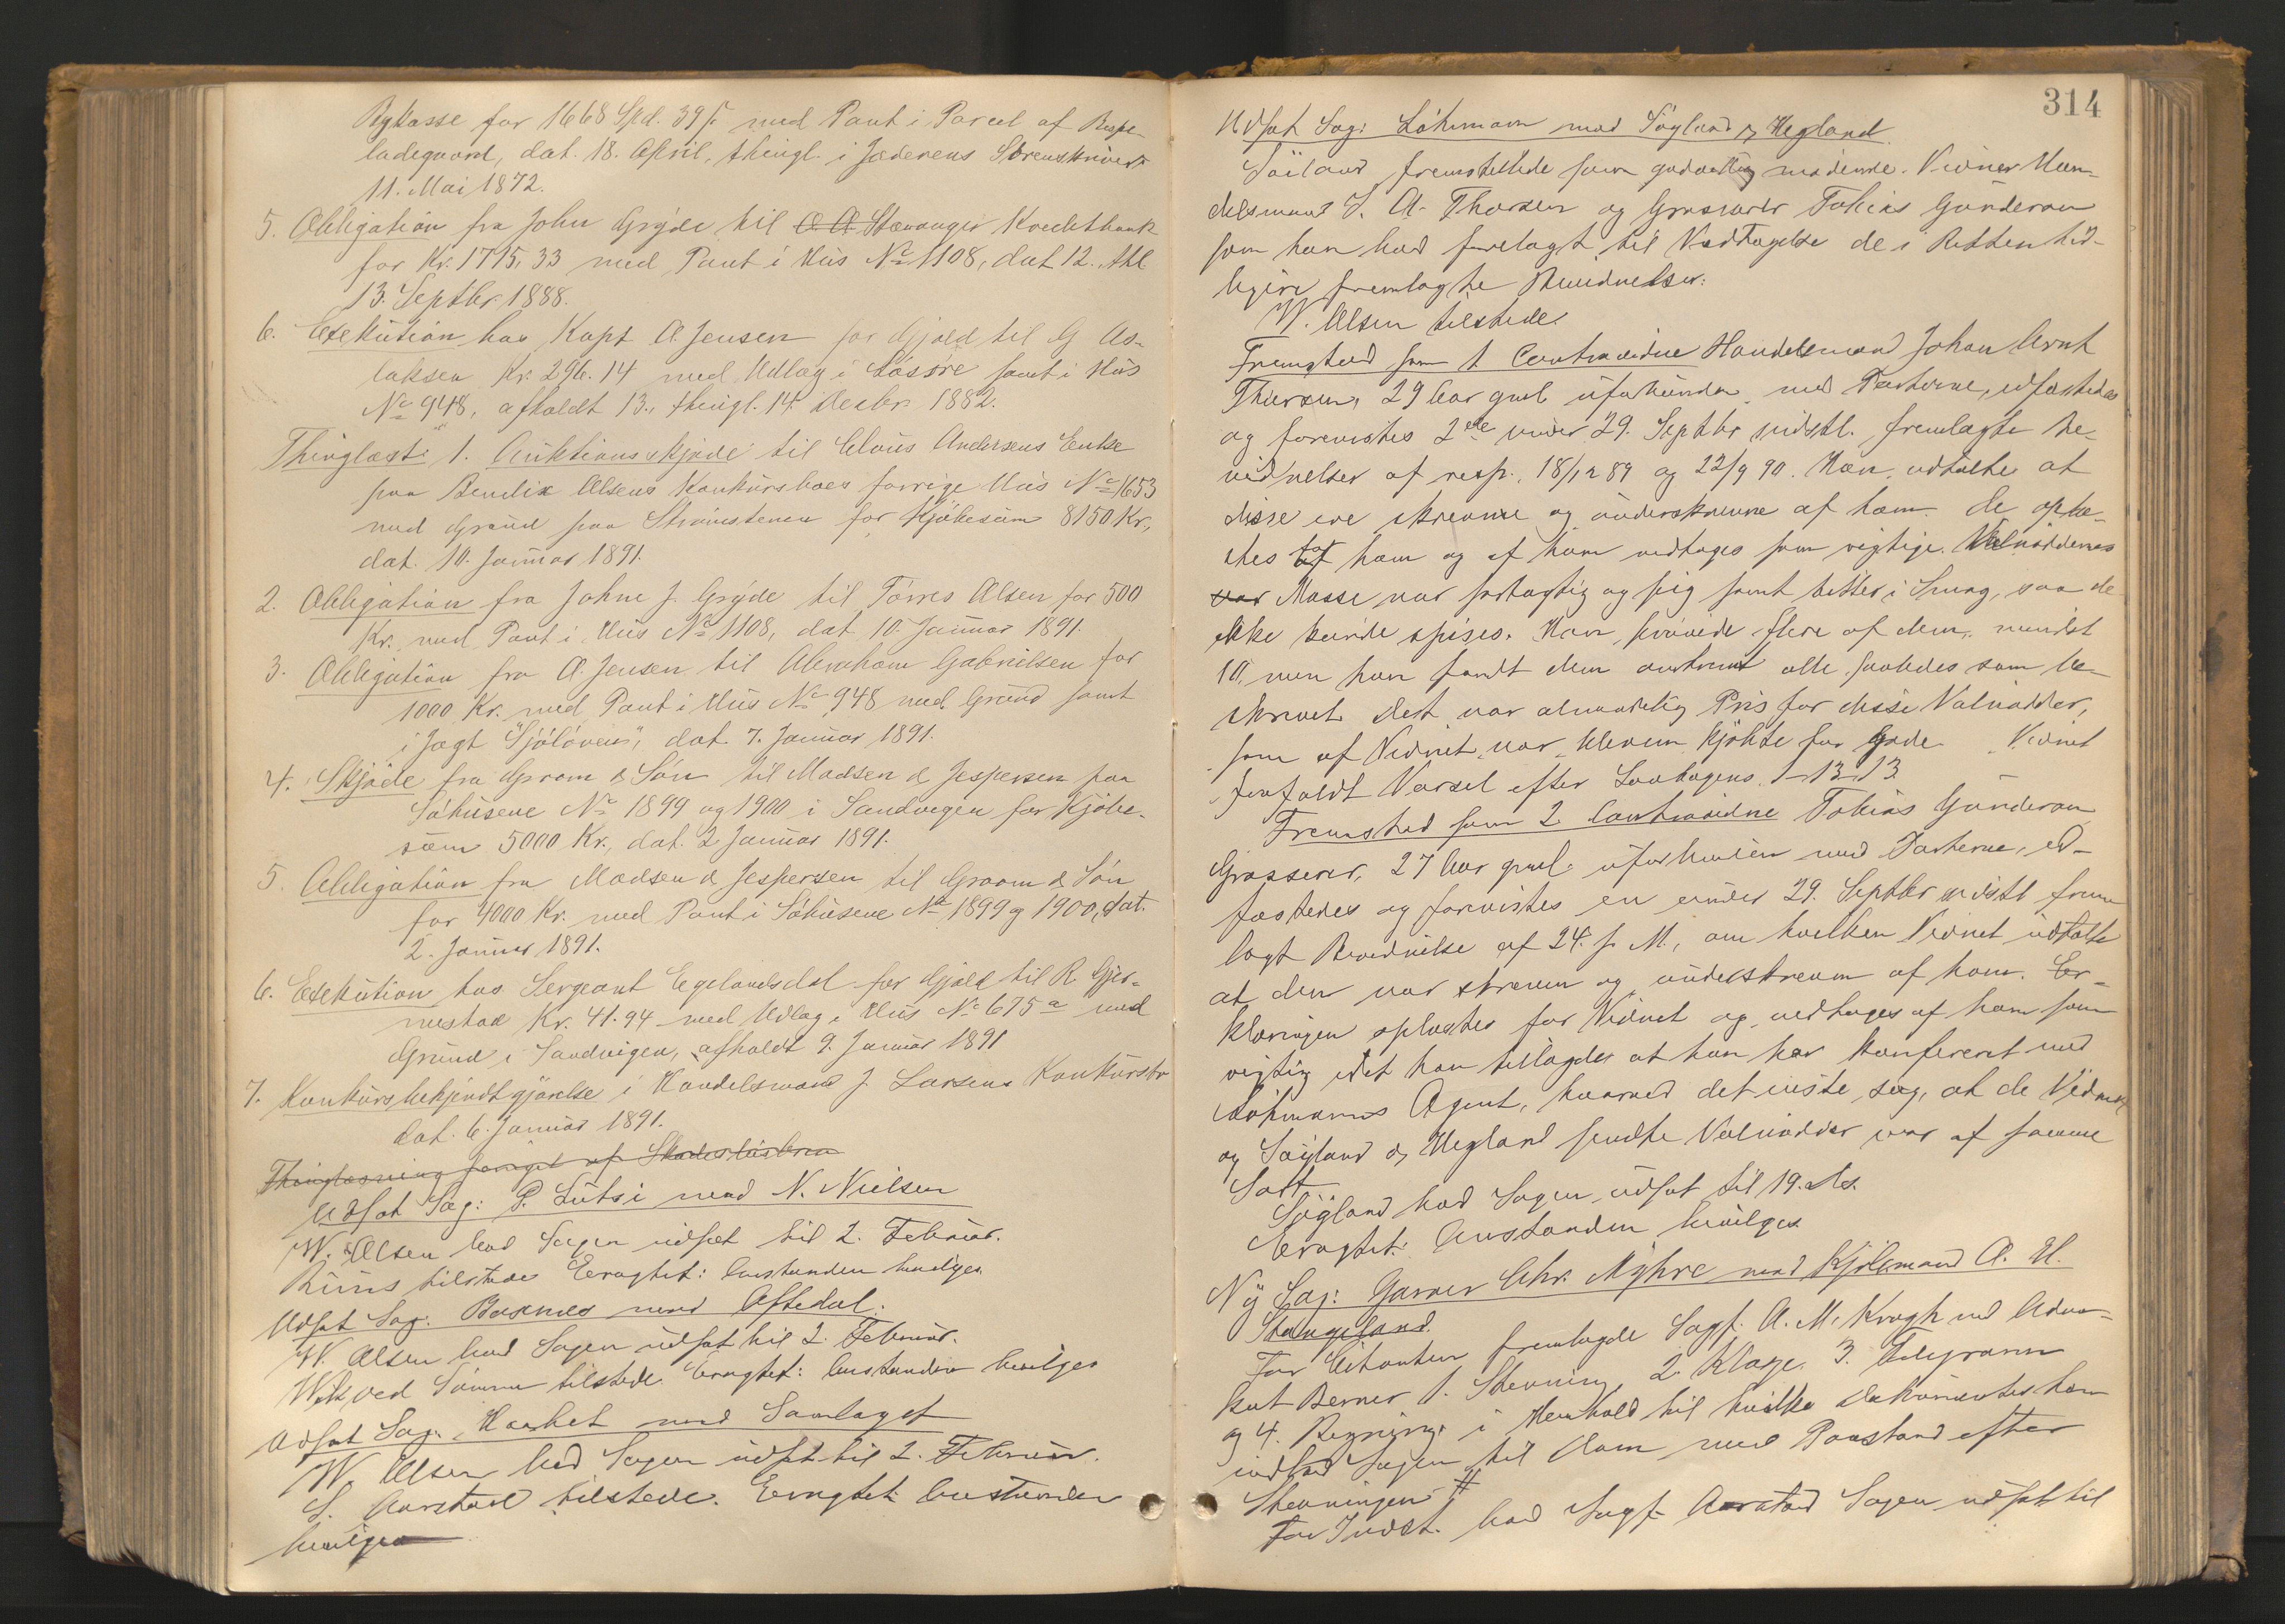 Bykasse for 1668 Spd. 39 ß med Pant i Parcel af Bispe-
ladegaard, dat. 18. April, thingl. i Jæderens Sorenskriveri
11. Mai 1872.
5. Obligation fra John Gryde til O A Stavanger Kreditbank
for Kr. 1715,33 med Pant i Hus No 1108, dat 12., thl
13. Septbr 1888.
6. Exekution hos Kapt A Jensen for Gjæld til G As-
laksen Kr. 296.14 med Udlæg i Løsøre samt i Hus
No 948, afholdt 13., thingl. 14 Decbr. 1882.
Thinglæst: 1. Auktionsskjøde til Claus Andersens Enke
paa Bendix Olsens Konkursboes forrige Hus No 1653
med Grund paa Strømstenen for Kjøbesum 8150 Kr,
dat. 10. Januar 1891.
2. Obligation fra Johne J. Gryde til Tørres Olsen for 500
Kr. med Pant i Hus No 1108, dat. 10. Januar 1891.
3. Obligation fra A. Jensen til Abraham Gabrielsen for
1000 Kr. med Pant i Hus No 948 med Grund samt
i Jagt "Sjøløven", dat. 7. Januar 1891.
4. Skjøde fra Gram & Søn til Madsen & Jespersen paa
Søhusene No 1899 og 1900 i Sandvigen for Kjøbe-
sum 5000 Kr., dat. 2 Januar 1891.
5. Obligation fra Madsen & Jespersen til Graam & Søn
for 4000 Kr. med Pant i Søhusene No 1899 og 1900, dat.
2. Januar 1891.
6. Exekution hos Sergeant Egelandsdal for Gjæld til R. Gjer-
mestad Kr. 41.94 med Udlæg i Hus No 675 a med
Grund i Sandvigen, afholdt 9. Januar 1891
7. Konkursbekjendtgjørelse i Handelsmand J. Larsens Konkursbo
dat. 6. Januar 1891.
Thinglæsning
Udsat Sag: P. Lutsi mod N. Nielsen
W. Olsen bad Sagen udsat til 2. Februar.
tilstede Eragtet: Anstanden bevilges
Udsat Sag: mod Aftedal.
W. Olsen bad Sagen udsat til 2. Februar.
ved Sømme tilstede. Eragtet: Anstanden bevilges
Udsat Sag: mod Samlaget
W. Olsen bad Sagen udsat til 2. Februar.
S. Aarstad tilstede. Eragtet: Anstanden
bevilges
314
Udsat Sag: Løhmann mod Søyland & Hegland
Søiland fremstillede som godvillig mødende Vidner Han-
delsmand J. A. Thorsen og Grosserer Tobias Gunderson
som han bad forelagt til Vedtagelse de i Retten tid-
ligere fremlagte Bevidnelser.
W. Olsen tilstede.
Fremstod som 1 Contravidne Handelsmand Johan Arnt
Thorsen, 29 Aar gml uforbunden med Parterne, edfæstedes
og forevistes 2de under 29. Septbr sidstl. fremlagte be-
vidnelser af resp. 18/12 89 og 22/9 90. Han udtalte at
disse ere skrevne og underskrevne af ham. De oplæ-
stes for ham og af ham vedtoges som rigtige. Valnøddernes
var Masse var og seig samt bitter i Smag, saa de
ikke kunde spises. Han prøvede flere af dem, mindst
10, men han fandt dem alle saaledes som be-
skrevet. Det var almindelig Pris for disse Valnødder,
som af Vidnet var bleven kjøbte for gode. Vidnet
frafaldt Varsel efter Lovbogens 1-13-13.
Fremstod som 2 Contravidne Tobias Gunderson
Grosserer, 27 Aar gml. uforbunden med Parterne, ed-
fæstedes og forevistes en under 29. Septbr sidstl frem
lagt Bevidnelse af 24. s. M., om hvilken Vidnet udtalte
at den var skreven og underskreven af ham. Er-
klæringen oplæstes for Vidnet og vedtoges af ham som
rigtig idet han tillagde, at han har konfereret med
Løhmanns Agent, hvorved det viste seg, at de Vidnet
og Søyland & Hegland sendte Valnødder var af samme
Sort
Søyland bad Sagen udsat til 19. ds.
Eragtet: Anstanden bevilges
Ny Sag: Garver Chr. Myhre mod Kjøbmand A. H.
Stangeland.
For Citanten fremlagde Sagf. A. M. Krogh ved Advo-
kat Berner 1. Stevning, 2. Klage, 3. Telegram
og 4. Regning, i Henhold til hvilke Dokumenter han
indlod Sagen til Dom med Paastand efter
Stevningen #
For Indst. bad Sagf. Aarstad Sagen udsat til